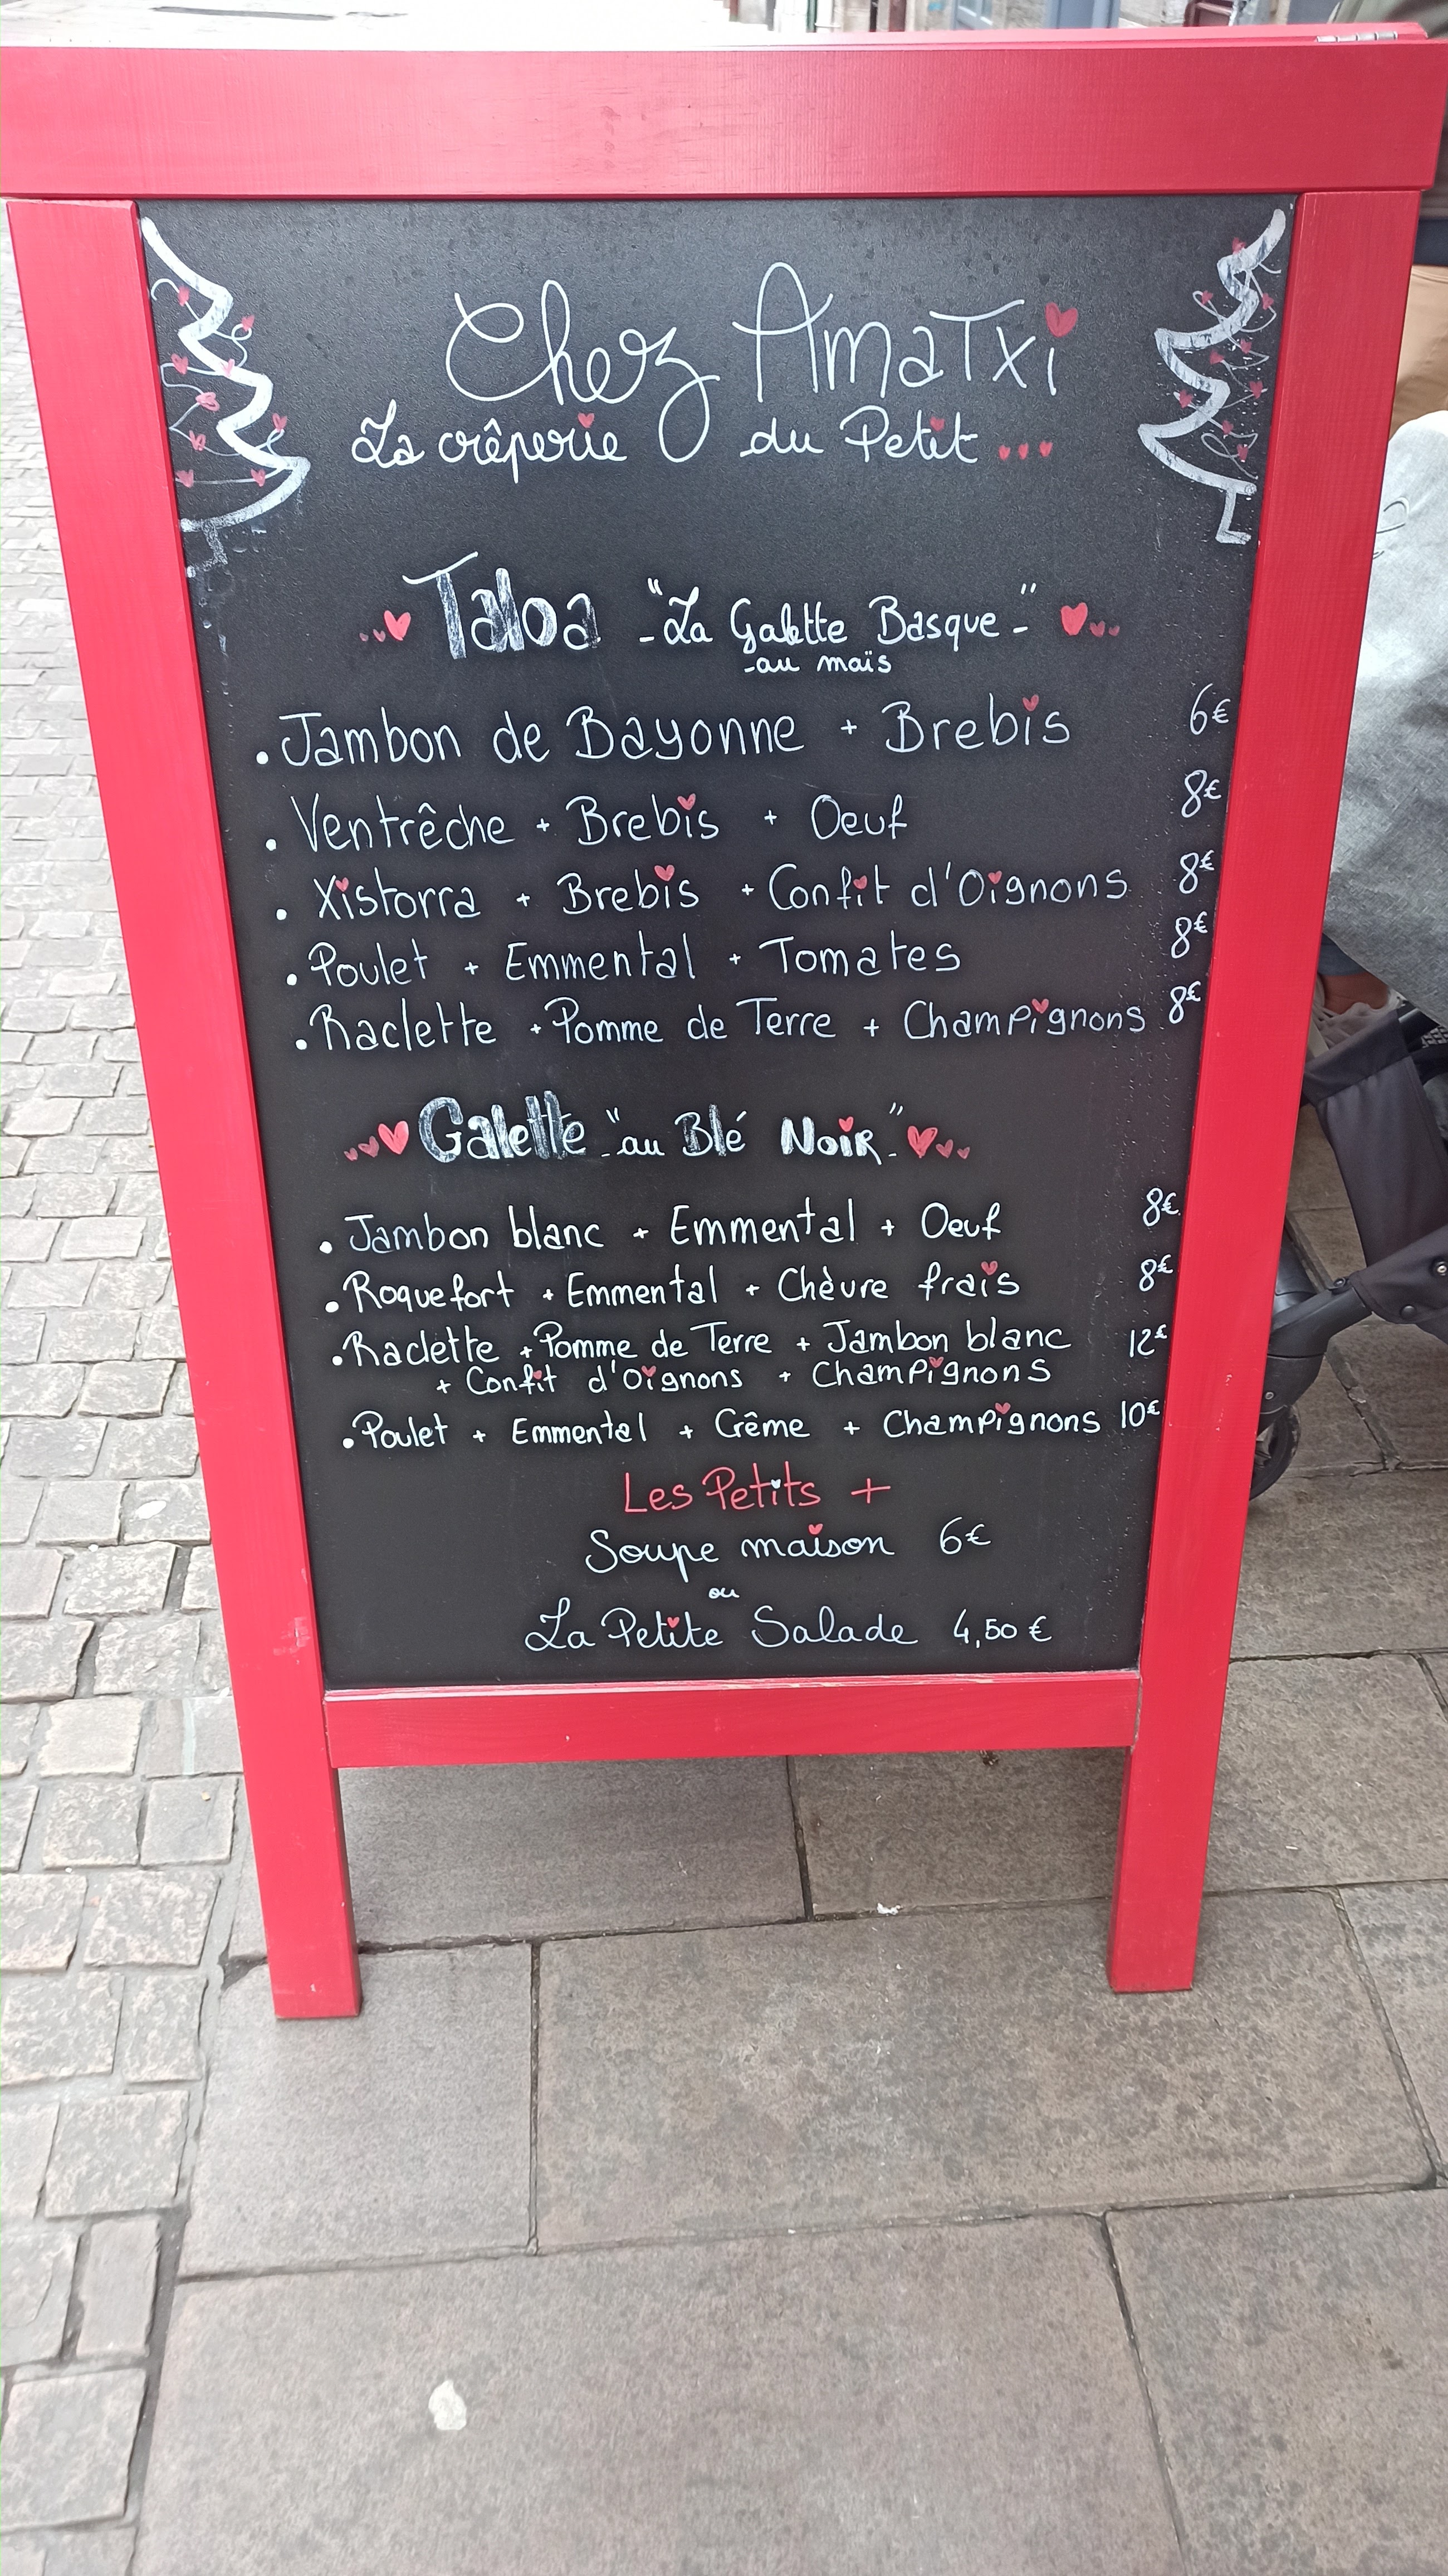 Chez AmaTxi
La crêperie du Petit...
Taloa -"La Galette Basque-"
-au maïs
.Jambon de Bayonne + Brebis 6€
. Ventrêche + Brebis + Oeuf 8€
. Xistorra + Brebis + Confit d'Oignons 8€
. Poulet + Emmental + Tomates 8€
. Raclette + Pomme de Terre + Champignons 8€
Galette -"au Blé Noir-"
. Jambon blanc + Emmental + Oeuf 8€
. Roquefort + Emmental + Chèvre frais 8€
. Raclette + Pomme de Terre + Jambon blanc 12€
+ Confit d'Oignons + Champignons
. Poulet + Emmental + Crême + Champignons 10€
Les Petits +
Soupe maison 6€
ou
La Petite Salade 4,50 €